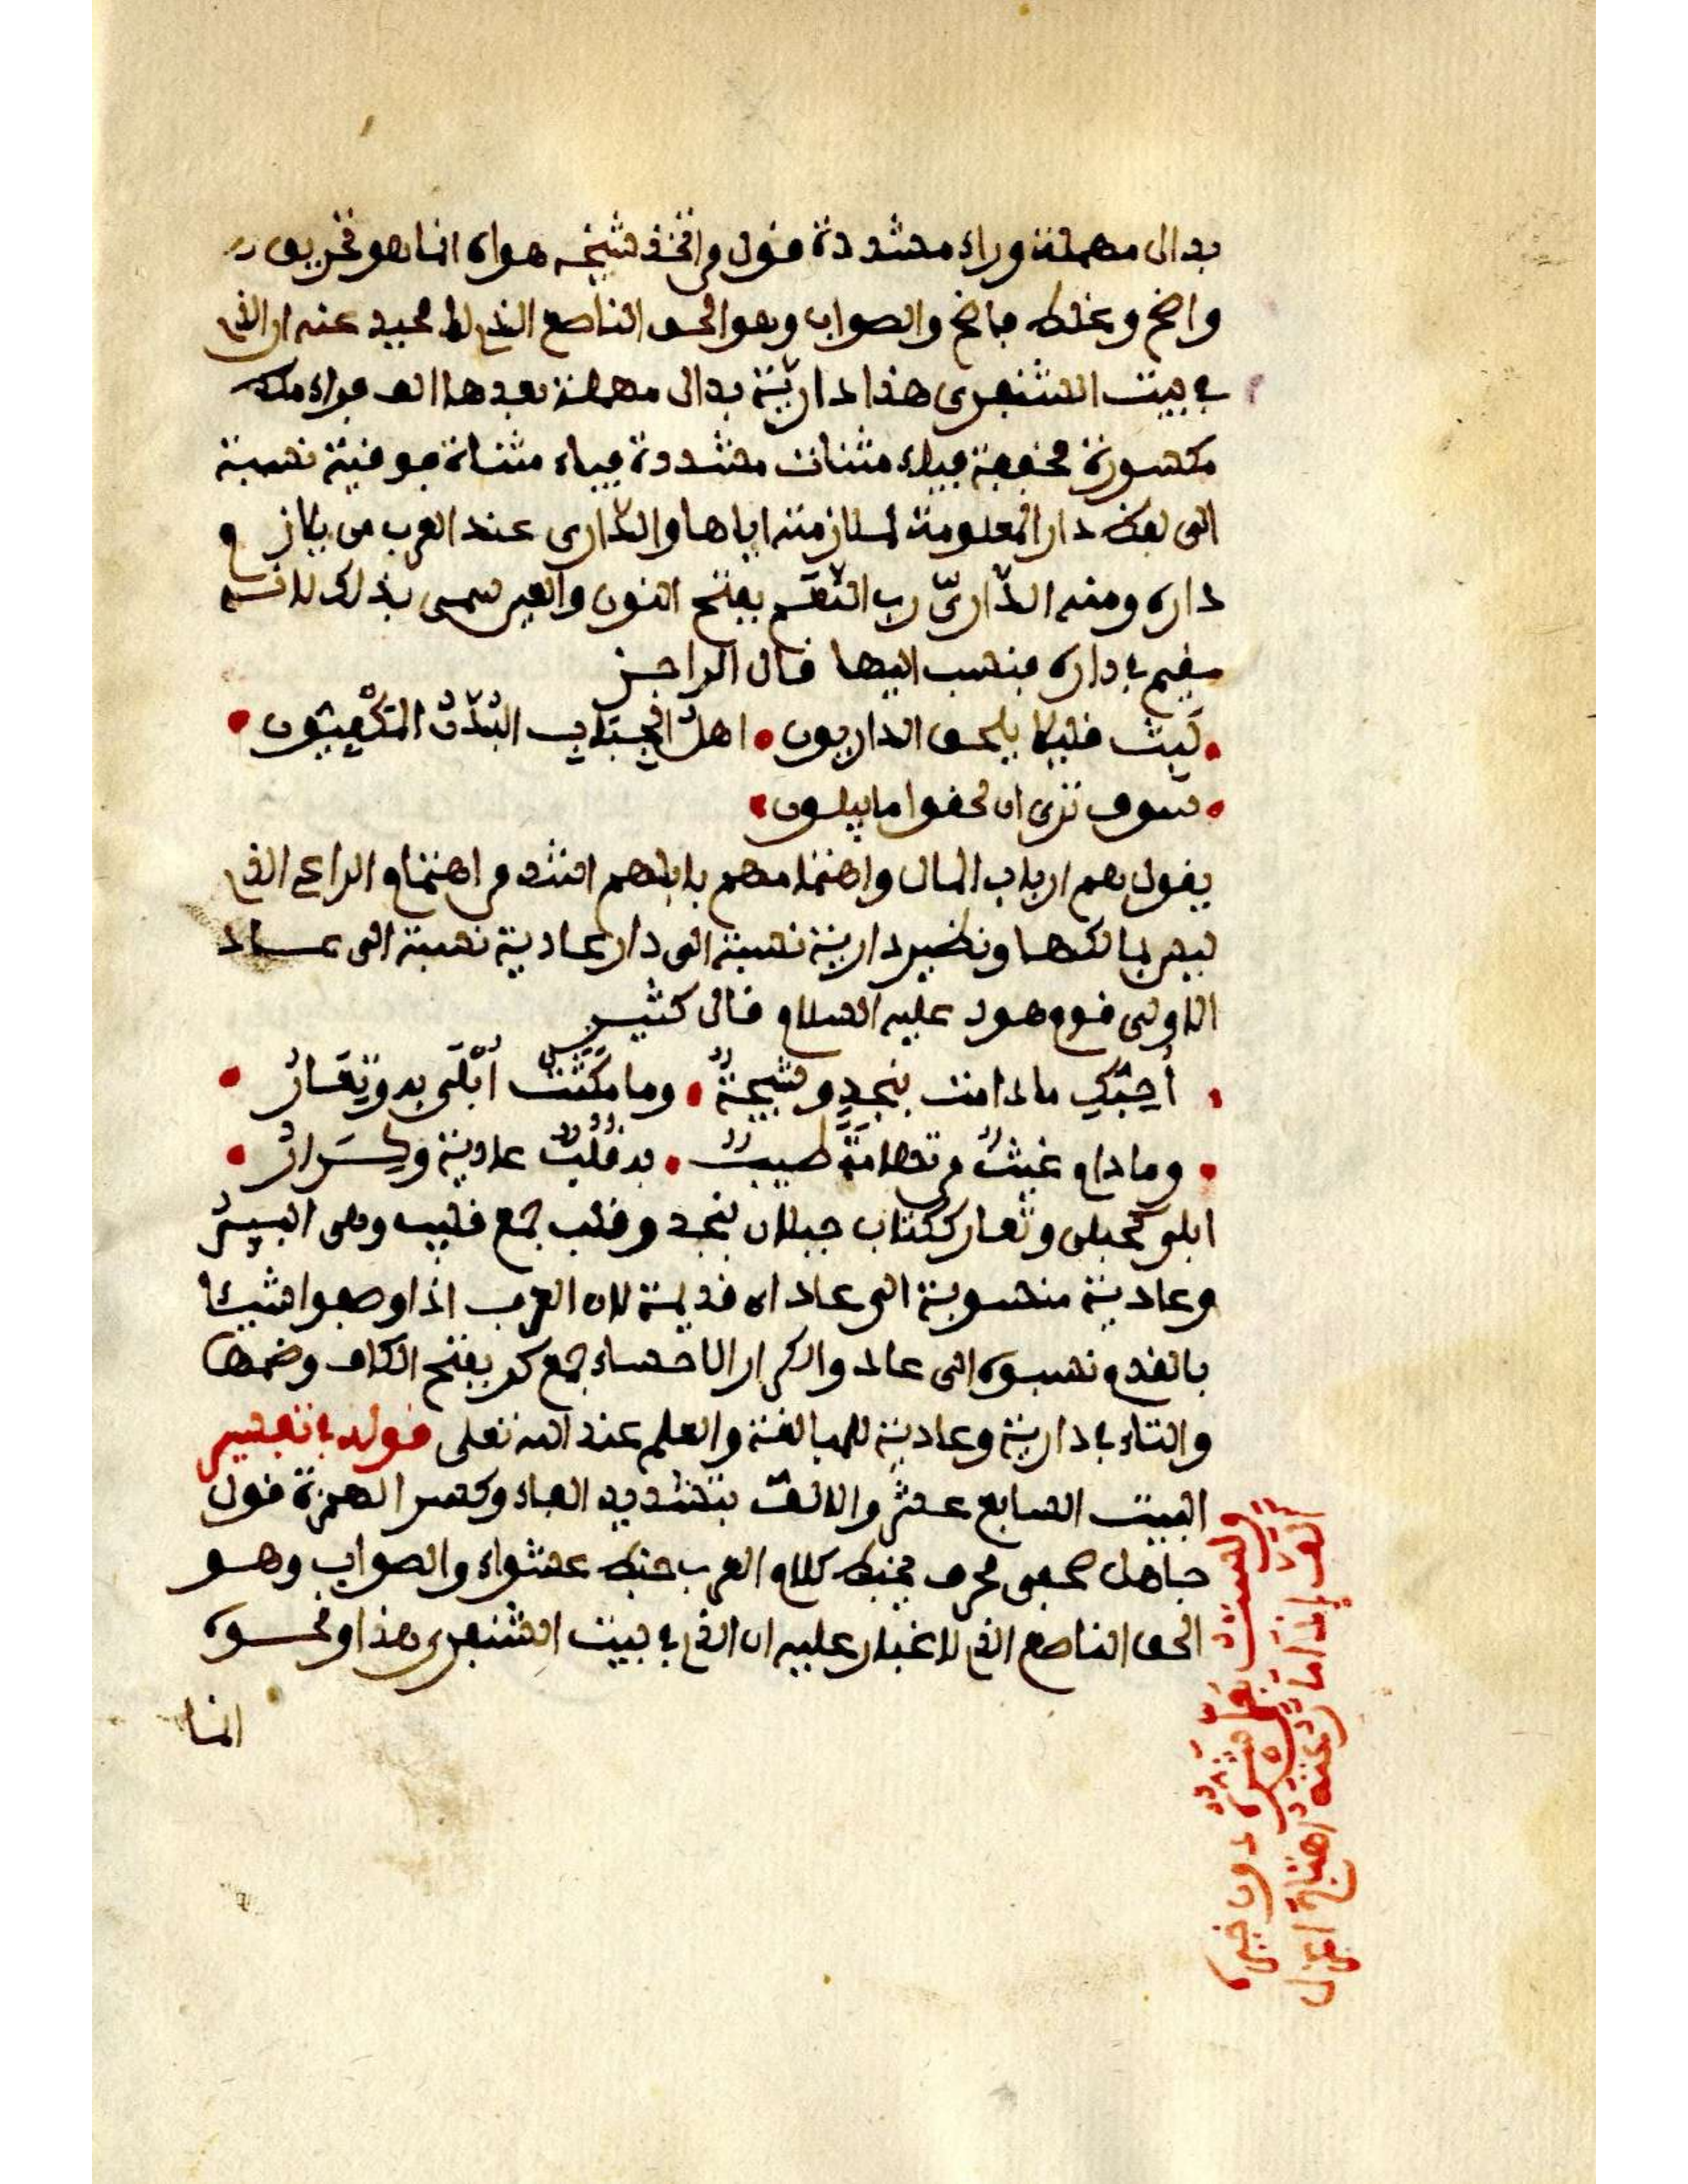 بدال مهملة وراء مشددة قول من اتخذ شيخه هواه انما هو تحريف
واضح وغلط فاضح والصواب وهو الحق الناصع الذي لا محيد عنه ان الذي
في بيت الشنفرى هذا داريّة بدال مهملة بعدها الف فراء مهملة
مكسورة مخففة فياء مثنات مشددة فياء مثناة فوقية نسبة
الى لفظ دار المعلومة لملازمته اياها والدّارى عند العرب من يلازم
داره ومنه الدّاريّ رب النَّعَم بفتح النون والعين سمى بذلك لانه
مقيم في داره فنسب اليها قال الراجز
لَبِّثْ قليلا يلحق الداريون اهل الجباب البُدَّنُ المكفيّون
سوف ترى ان لحقوا ما يبلون
يقول هم ارباب المال واهتمامهم بابلهم اشد من اهتمام الراعي الذي
ليس بمالكها ونظير دارية نسبة الى دار عادية نسبة الى عاد
الاولى قوم هود عليه السلام قال كثير
أُحِبُّكِ ما دامت بنجد وشيجةٌ وما ثبتت أُبْلَى به وتِعَارُ
وما دام غيثٌ من تهامَةَ طيبٌ به قُلُبٌ عادية وكِرَارُ
ابلى كحبلى وتعار ككتاب جبلان بنجد وقلب جمع قليب وهى البير
وعادية منسوبة الى عاد اى قديمة لان العرب اذا وصفوا شيئا
بالقدم نسبوه الى عاد والكرار الاحساء جمع كر بفتح الكاف وضمها
والتاء في دارية وعادية للمبالغة والعلم عند الله تعلى قوله في تفسير
البيت السابع عشر والالفّ بتشديد الفاء وكسر الهمزة قول
جاهل صحفى محرف يخبط كلام العرب خبط عشواء والصواب وهو
الحق الناصع الذي لا غبار عليه ان الذي في بيت الشنفرى هذا ونحوه
انما
ولستُ بعَلٍّ شَرُّهُ دون خيره
أَلَفَّ إذا ما رُعْتَه اهتاج اعزل